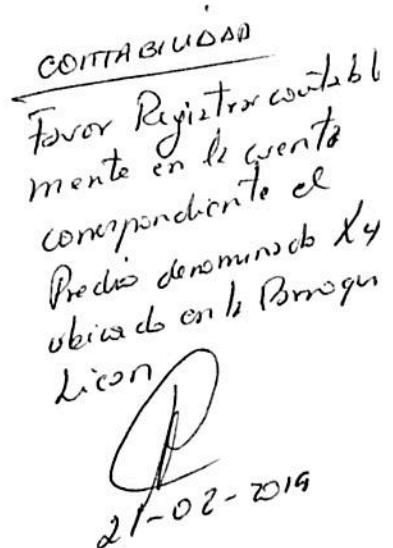 CONTABILIDAD
Favor Registrar contabl
mente en la cuenta
correspondiente el
Predio denominado X4
ubicado en la Parroqu
Licán
21-02-2019